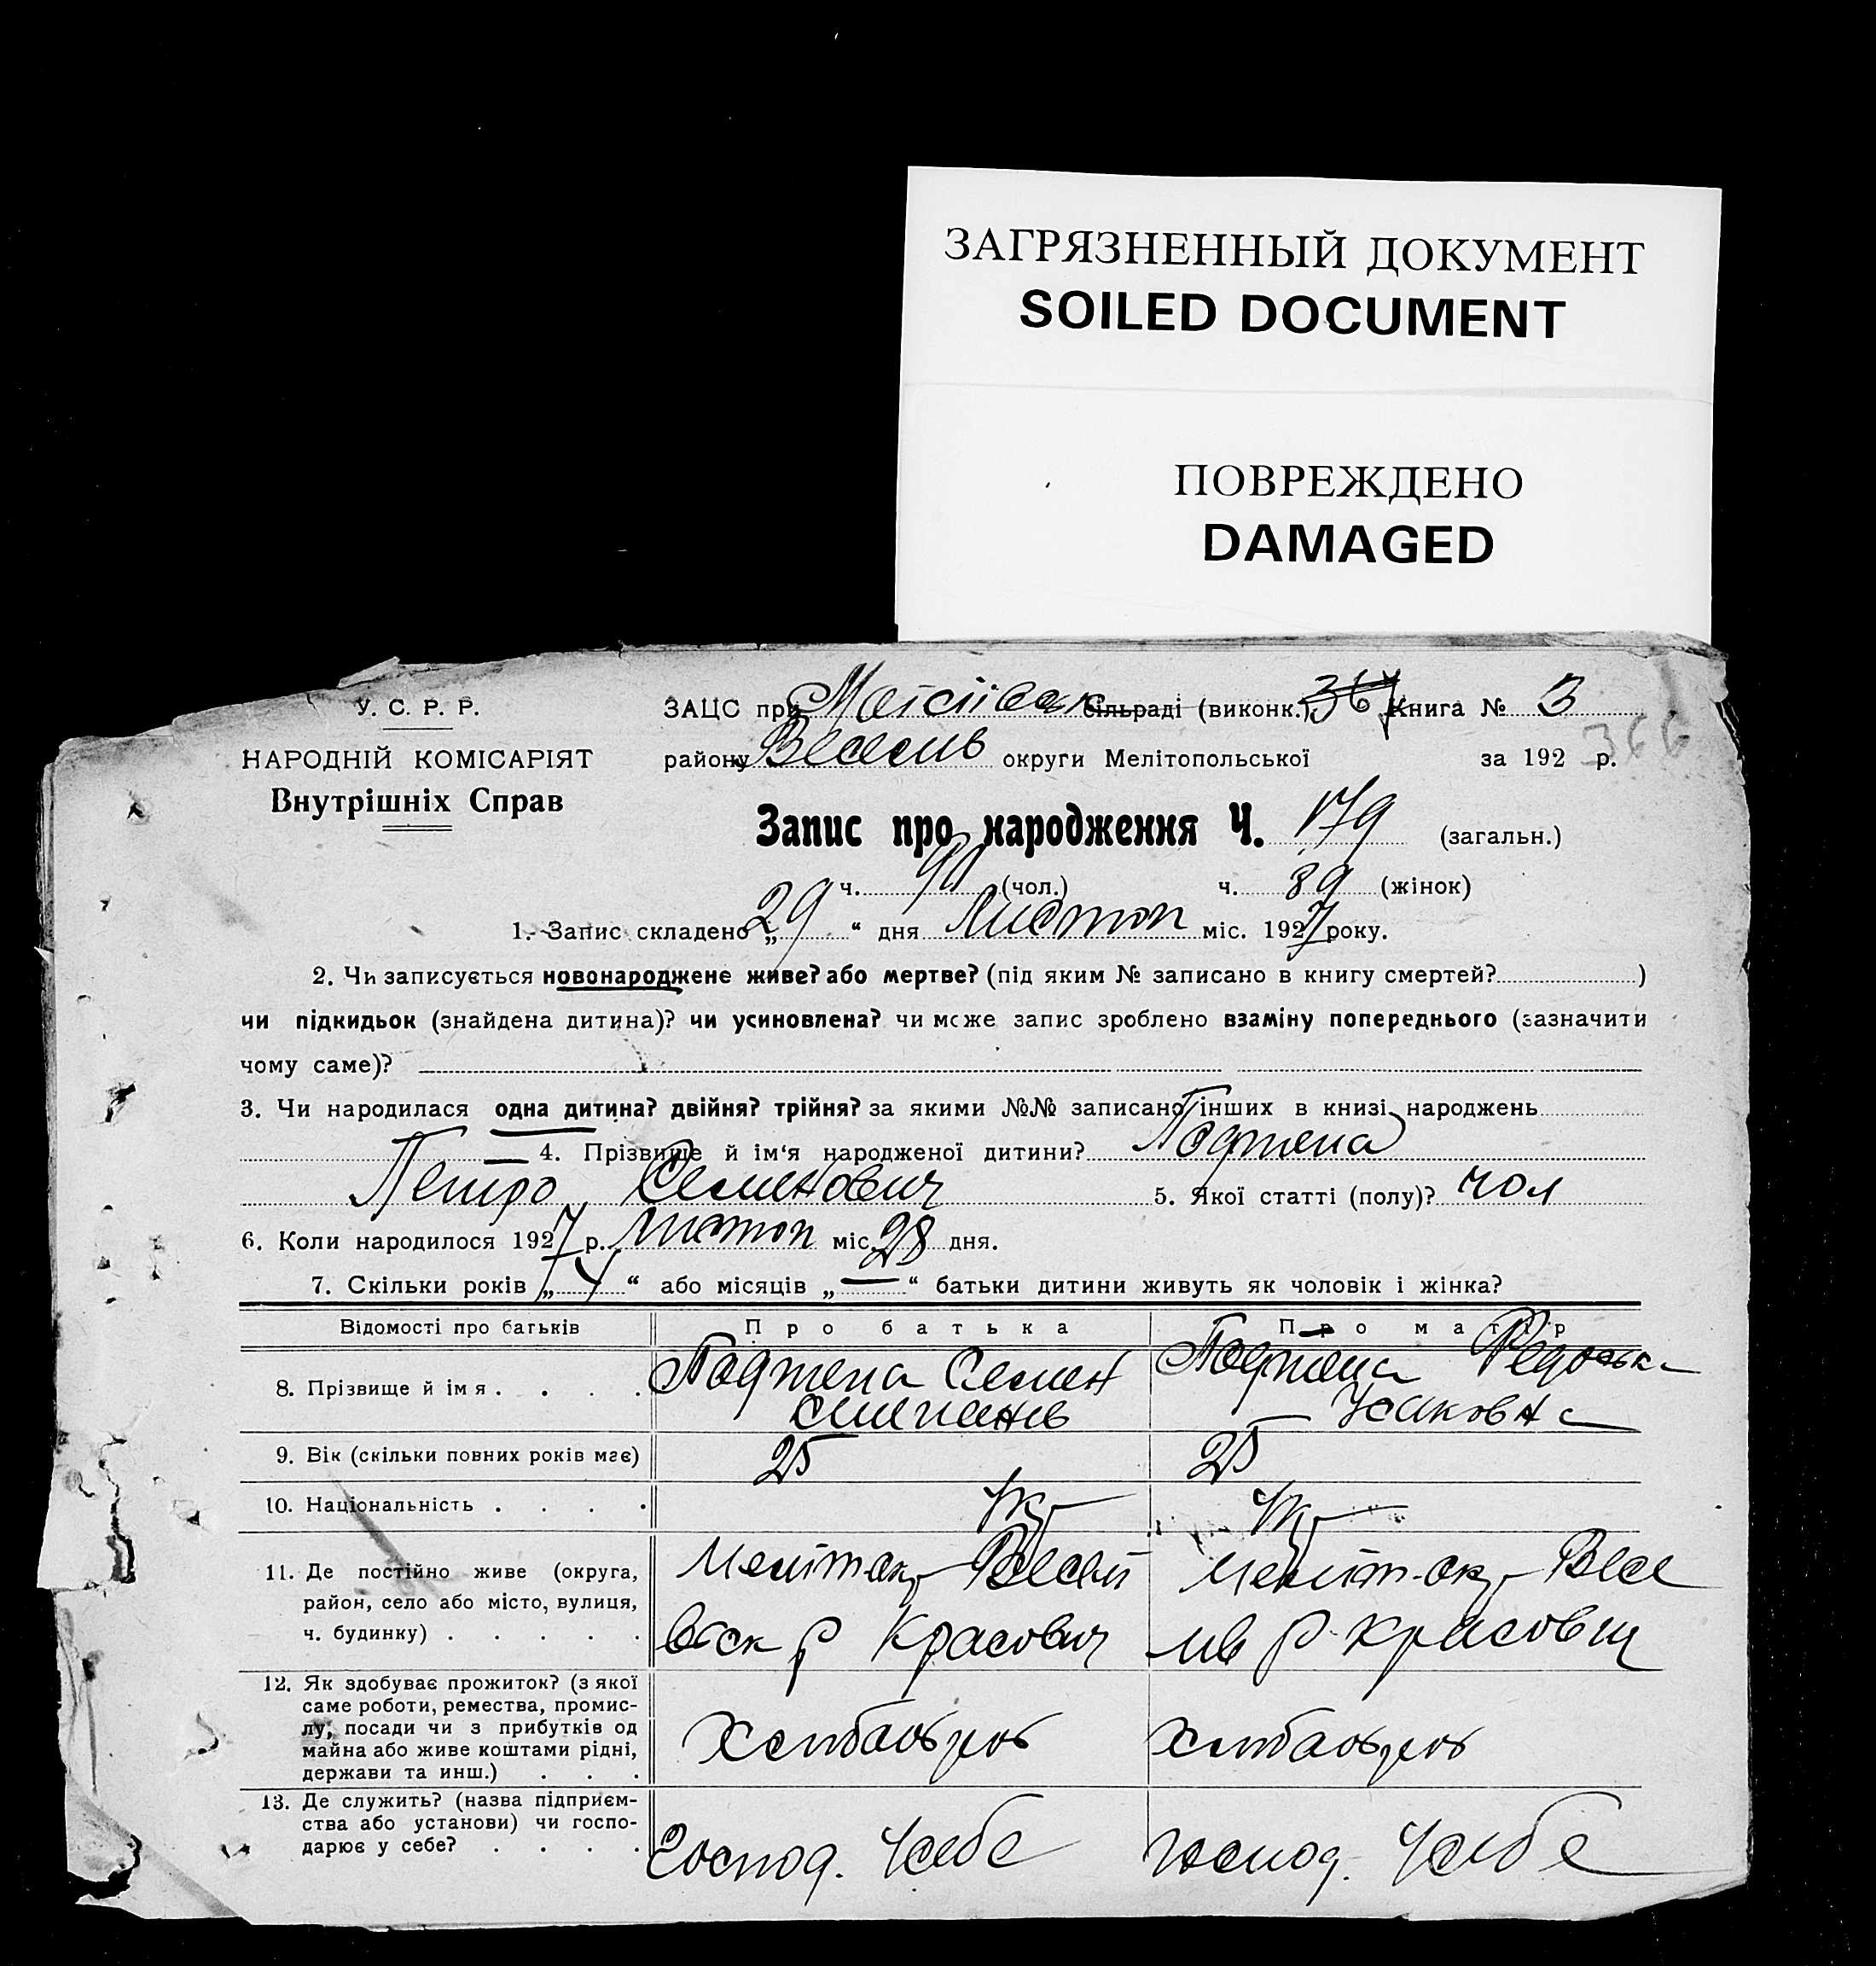 ЗАГРЯЗНЕННЫЙ ДОКУМЕНТ
SOILED DOCUMENT
ПОВРЕЖДЕНО
DAMAGED
У. С. Р. Р.
НАРОДНІЙ КОМІСАРІЯТ
Внутрішніх Справ
ЗАЦС при сільраді (виконк.) 367 Книга № 3
району Веселів округи Мелітопольської за 192 р. 366
Запис про народження Ч. 179 (загальн.)
ч. 90 (чол.) ч. 89 (жінок)
1. Запис складено „29“ дня Листоп міс. 1927 року.
2. Чи записується новонароджене живе? або мертве? (під яким № записано в книгу смертей? )
чи підкидьок (знайдена дитина)? чи усиновлена? чи може запис зроблено взаміну попереднього (зазначити
чому саме)?
3. Чи народилася одна дитина? двійня? трійня? за якими №№ записано інших в книзі народжень
4. Прізвище й ім'я народженої дитини? Подтепа
Петро Семенович 5. Якої статті (полу)? чол
6. Коли народилося 1927 р. Листоп міс. 28 дня.
7. Скільки років „ “ або місяців „—“ батьки дитини живуть як чоловік і жінка?
Відомості про батьків Про батька Про матір
8. Прізвище й імя . . . . Подтепа Семен Подтепа Федоська
Степанів Ісаковна
9. Вік (скільки повних років має) 25 25
10. Національність . . . . Укр Укр
11. Де постійно живе (округа, Меліт ок Весел Меліт. ок Весе
район, село або місто, вулиця,
ч. будинку) . . . . . вск р лів р
12. Як здобуває прожиток? (з якої
саме роботи, ремества, промис-
лу, посади чи з прибутків од Хлібороб Хлібороб
майна або живе коштами рідні,
держави та инш.) . . .
13. Де служить? (назва підприєм-
ства або установи) чи госпо- Господ. у себе Господ. у себе
дарює у себе? . . . .